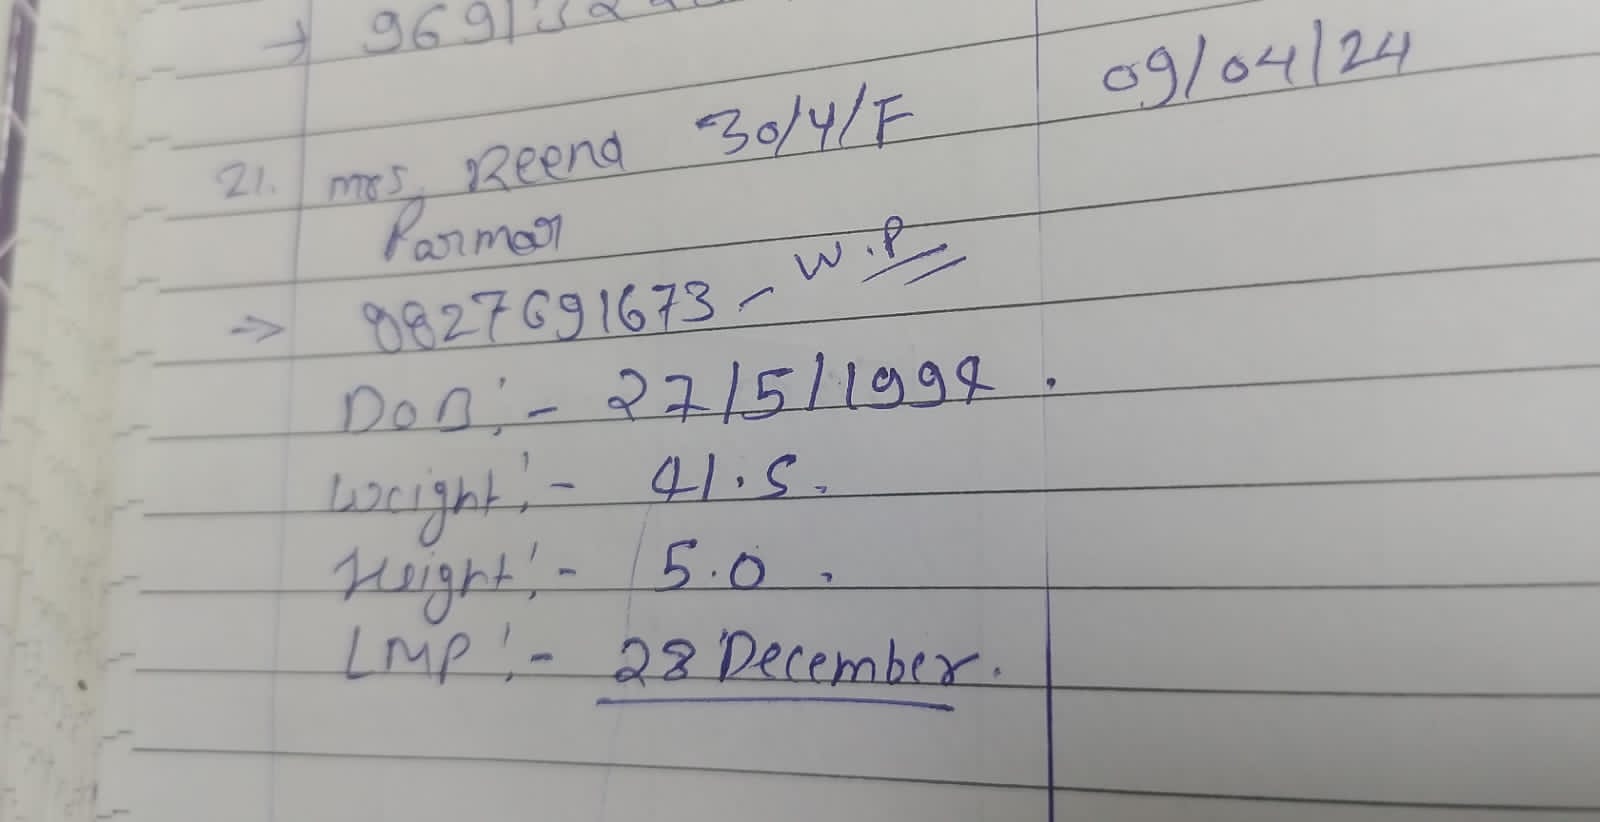 → 9691
09/04/24
21. Mrs. Reena 30/Y/F
Parmar
⇒ 8827691673 - W.P
DOB:- 27/5/1994.
Weight:- 41.5.
Height:- 5.0.
LMP:- 28 December.